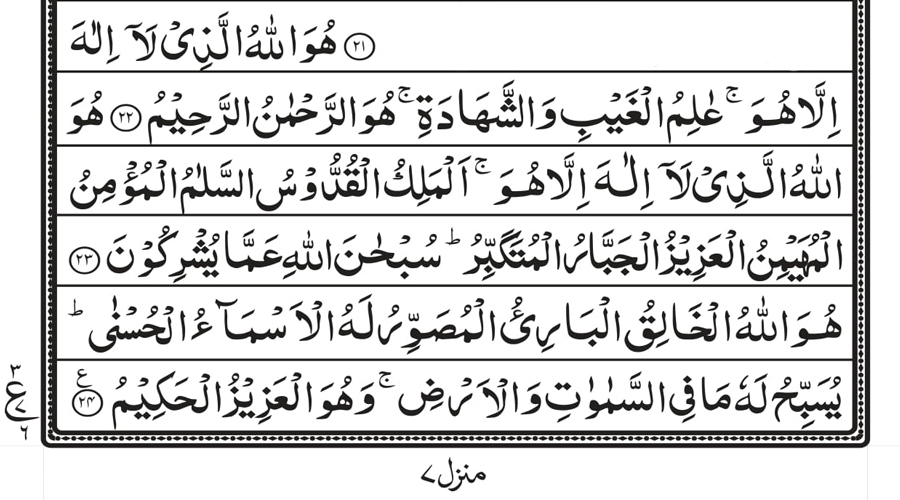 ۲۱ هُوَ اللّٰهُ الَّذِیْ لَاۤ اِلٰهَ
اِلَّا هُوَ ۚ عٰلِمُ الْغَیْبِ وَ الشَّهَادَةِ ۚ هُوَ الرَّحْمٰنُ الرَّحِیْمُ ۲۲ هُوَ
اللّٰهُ الَّذِیْ لَاۤ اِلٰهَ اِلَّا هُوَ ۚ اَلْمَلِكُ الْقُدُّوْسُ السَّلٰمُ الْمُؤْمِنُ
الْمُهَیْمِنُ الْعَزِیْزُ الْجَبَّارُ الْمُتَكَبِّرُ ؕ سُبْحٰنَ اللّٰهِ عَمَّا یُشْرِكُوْنَ ۲۳
هُوَ اللّٰهُ الْخَالِقُ الْبَارِئُ الْمُصَوِّرُ لَهُ الْاَسْمَآءُ الْحُسْنٰی ؕ
یُسَبِّحُ لَهٗ مَا فِی السَّمٰوٰتِ وَ الْاَرْضِ ۚ وَ هُوَ الْعَزِیْزُ الْحَكِیْمُ ۲۴ ع
۳
ع ۷
۶
منزل ۷